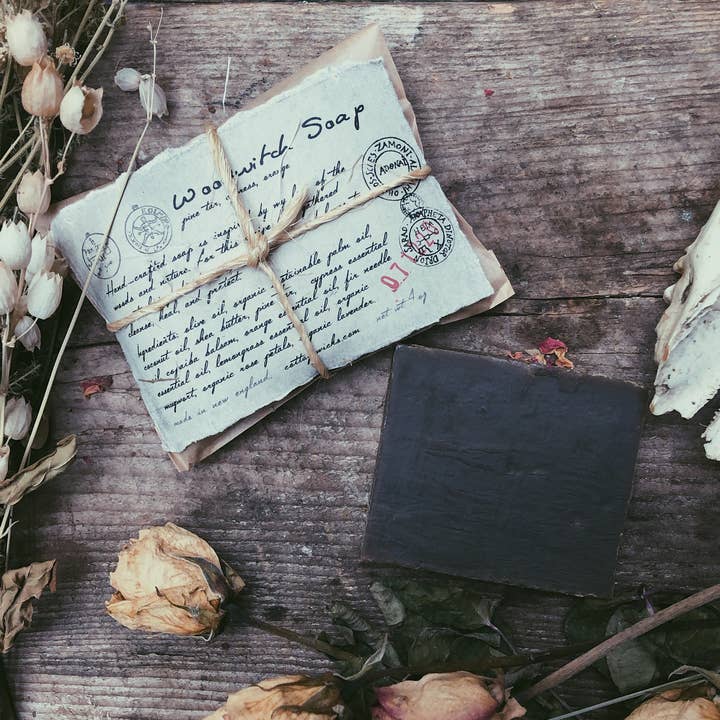 Woodwitch Soap
pine tar, cypress, orange
Hand-crafted soap is inspired by my love of the
woods and nature. for this gathered
cleanse, heal, and protect
Ingredients: olive oil, organic sustainable palm oil,
coconut oil, shea butter, pine tar, cypress essential
oil, copaiba balsam, orange essential oil, fir needle
essential oil, lemongrass essential oil, organic
mugwort, organic rose petals, organic lavender.
net wt 4 oz
made in new england.
ADONAI
07